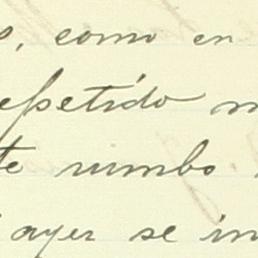 , como en
repetido
te rumbo
ayer se in